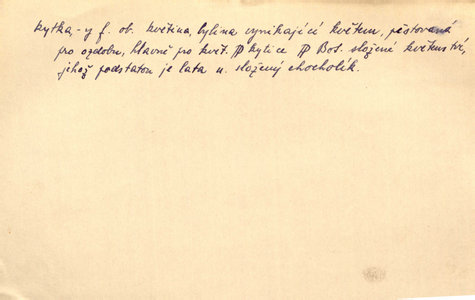 kytka, -y f. ob. květina, bylina vynikající květem, pěstovaná
pro ozdobu, hlavně pro květ. kytice Bot. složené květenství,
jehož podstatou je lata n. složený chocholík.